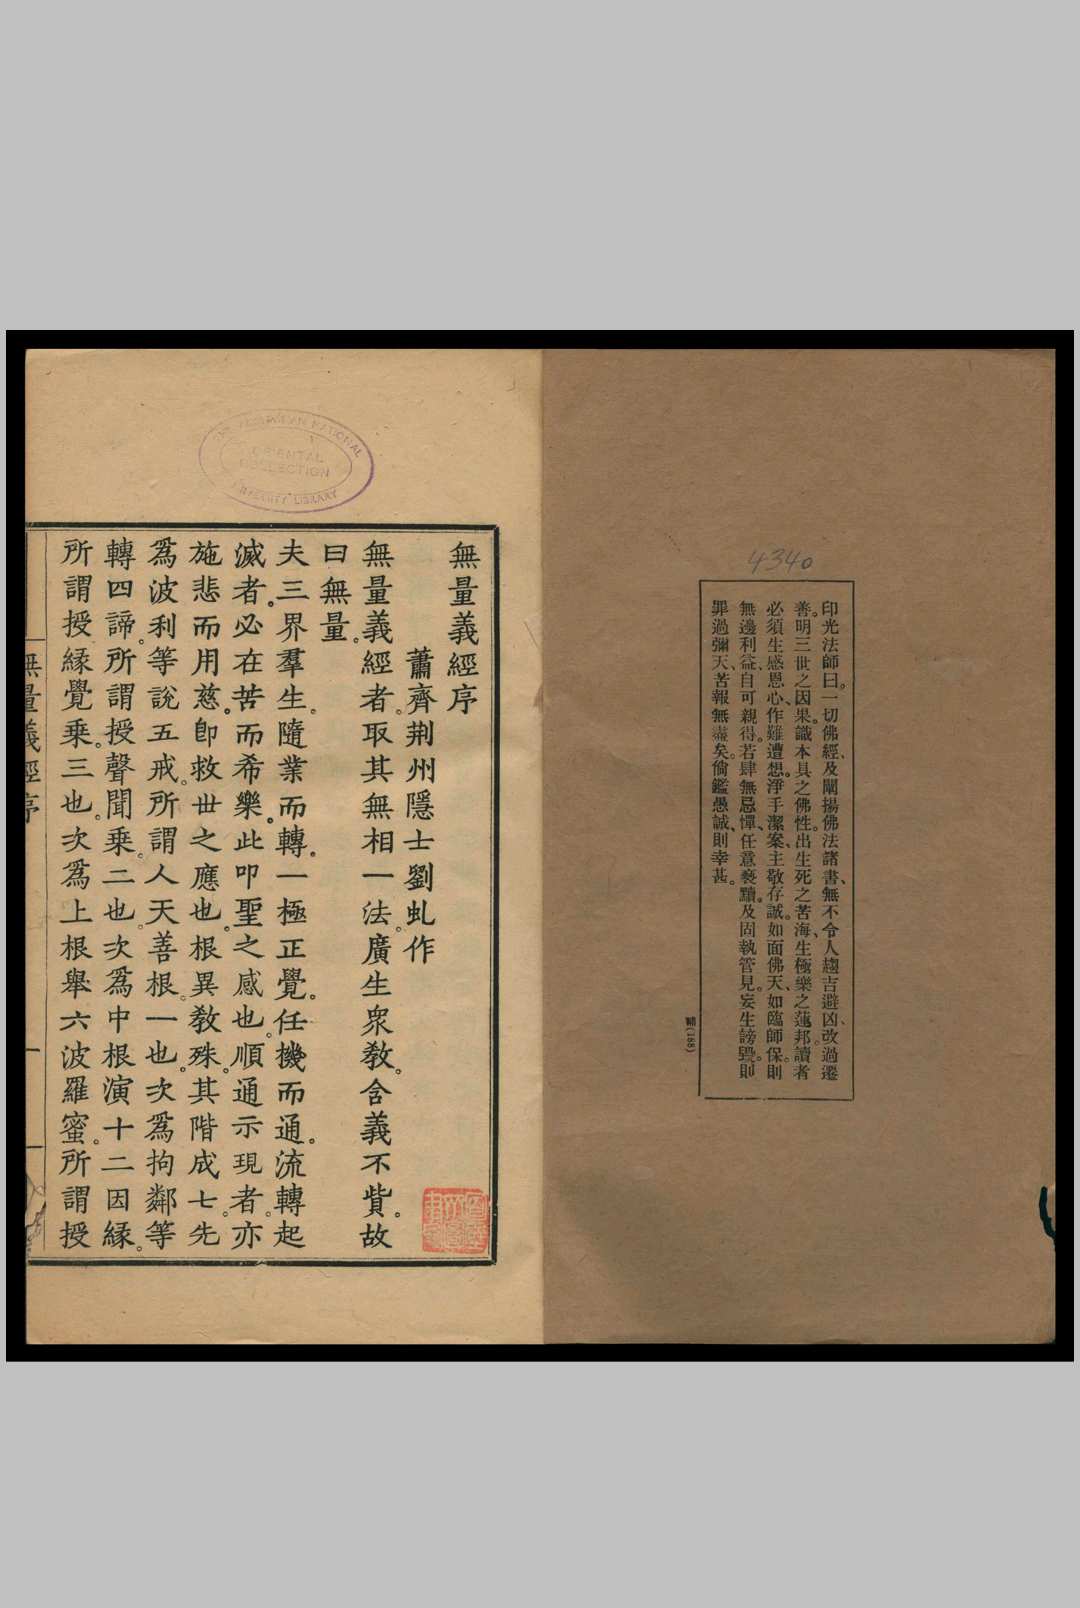 4340
印光法師曰。一切佛經、及闡揚佛法諸書、無不令人趨吉避凶、改過遷
善。明三世之因果。識本具之佛性。出生死之苦海、生極樂之蓮邦。讀者
必須生感恩心、作難遭想。淨手潔案、主敬存誠。如面佛天、如臨師保。則
無邊利益、自可親得。若肆無忌憚、任意褻黷。及固執管見。妄生謗毀。則
罪過彌天、苦報無盡矣。倘鑑愚誠、則幸甚。
輔(168)
無量義經序
蕭齊荆州隱士劉虬作
無量義經者。取其無相一法。廣生衆敎。含義不貲。故
曰無量。
夫三界羣生。隨業而轉。一極正覺。任機而通。流轉起
滅者。必在苦而希樂。此叩聖之感也。順通示現者。亦
施悲而用慈。卽救世之應也。根異敎殊。其階成七。先
爲波利等說五戒。所謂人天善根。一也。次爲拘鄰等
轉四諦。所謂授聲聞乘。二也。次爲中根演十二因緣。
所謂授緣覺乘。三也。次爲上根舉六波羅蜜。所謂授
無量義經序
一
THE AUSTRALIAN NATIONAL
ORIENTAL
COLLECTION
UNIVERSITY LIBRARY